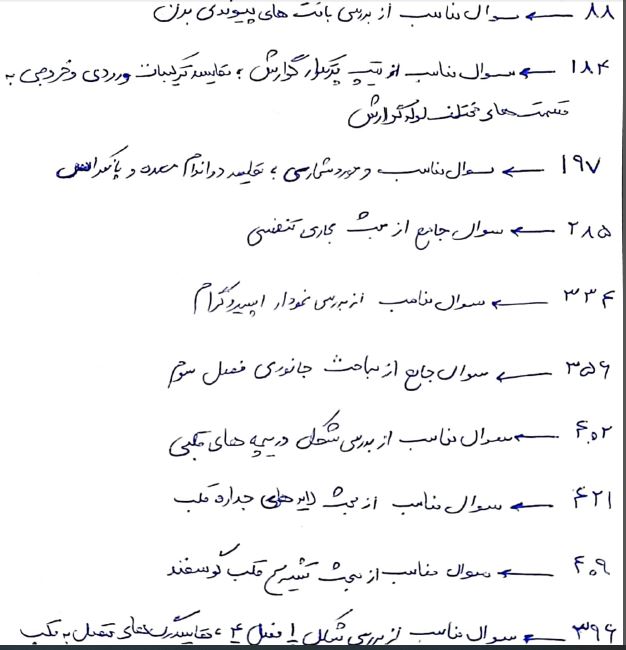 ۸۸ ← سوال مناسب از بررسی بافت های پیوندی بدن
۱۸۴ ← سوال مناسب از تیپ پرتکرار گوارش ؛ مقایسه ترکیبات ورودی و خروجی به
قسمت های مختلف لوله گوارش
۱۹۷ ← سوال مناسب و موردشمارسی ؛ مقایسه دو اندام معده و پانکراس
۲۸۵ ← سوال جامع از مبحث مجاری تنفسی
۳۳۴ ← سوال مناسب از بررسی نمودار اسپیروگرام
۳۵۶ ← سوال جامع از مباحث جانوری فصل سوم
۴۰۲ ← سوال مناسب از بررسی شکل دریچه های قلبی
۴۲۱ ← سوال مناسب از مبحث لایه های جداره قلب
۴۰۹ ← سوال مناسب از مبحث تشریح قلب گوسفند
۳۹۶ ← سوال مناسب از بررسی شکل ۱ فصل ۴ ، مقایسه رگ های متصل به قلب